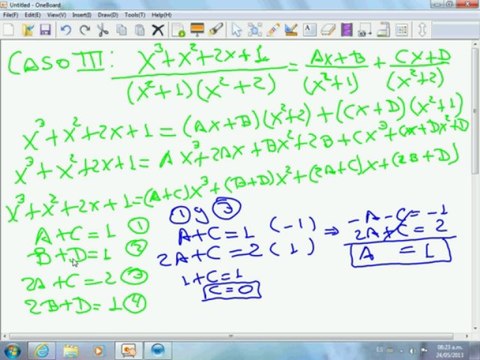 Untitled - OneBoard
File(F) Edit(E) View(V) Insert(I) Tools(T) Help(H)
CASO III: x³+x²+2x+1 / (x²+1)(x²+2) = Ax+B / (x²+1) + Cx+D / (x²+2)
x³+x²+2x+1=(Ax+B)(x²+2)+(Cx+D)(x²+1)
x³+x²+2x+1=Ax³+2Ax+Bx²+2B+Cx³+Cx+Dx²+D
x³+x²+2x+1=(A+C)x³+(B+D)x²+(2A+C)x+(2B+D)
A+C=1 ①
B+D=1 ②
2A+C=2 ③
2B+D=1 ④
① y ③
A+C=1 (-1)
2A+C=2 (1)
1+C=1
C=0
⇒ -A-C=-1
2A+C=2
A = 1
ES
08:23 a.m.
24/05/2013